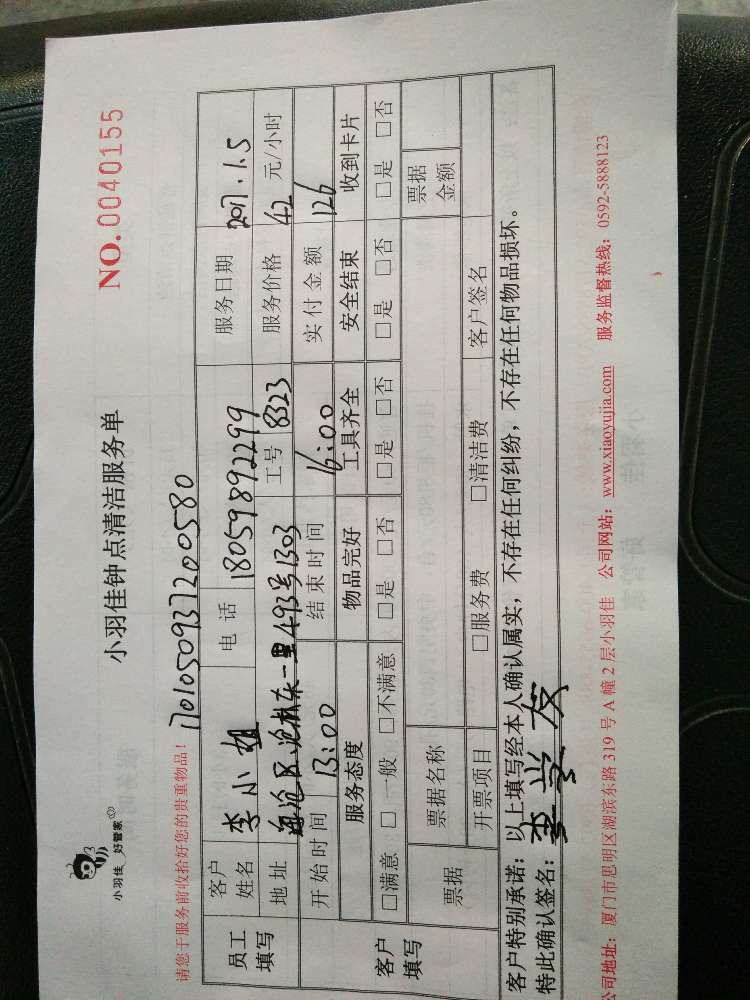 小羽佳 好管家
小羽佳钟点清洁服务单
NO.0040155
请您于服务前收拾好您的贵重物品！
1701050937200580
员工填写
客户姓名 李小姐 电话 18059892299 服务日期 2017.1.5
地址 海沧区沧林东一里493号1303 工号 8323 服务价格 42 元/小时
开始时间 13:00 结束时间 16:00 实付金额 126
客户填写
服务态度 物品完好 工具齐全 安全结束 收到卡片
□满意 □一般 □不满意 □是 □否 □是 □否 □是 □否 □是 □否
票据 票据名称 票据金额
开票项目 □服务费 □清洁费 客户签名
客户特别承诺：以上填写经本人确认属实，不存在任何纠纷，不存在任何物品损坏。
特此确认签名：李学友
公司地址：厦门市思明区湖滨东路 319 号 A 幢 2 层小羽佳 公司网站：www.xiaoyujia.com 服务监督热线：0592-5888123